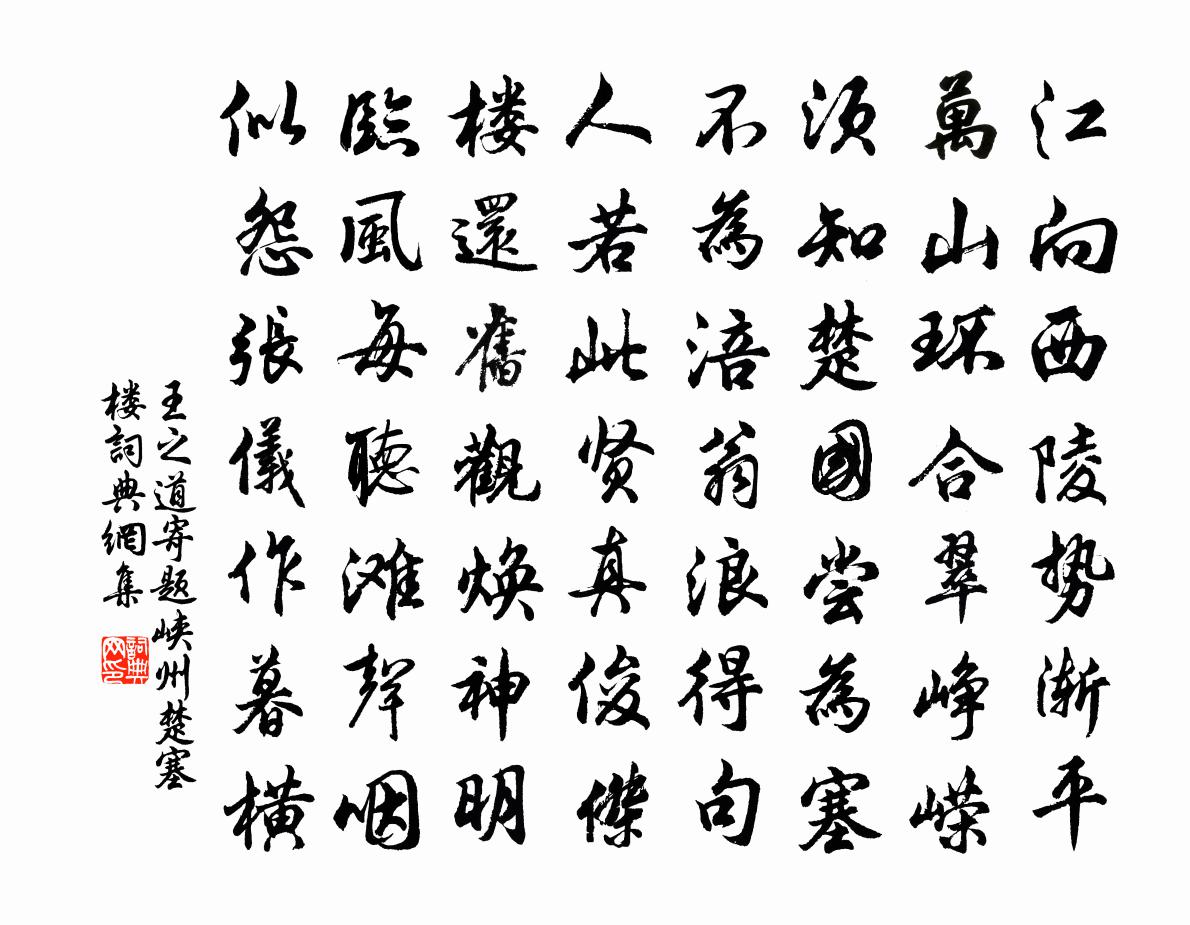 江向西陵势渐平
萬山环合翠峥嵘
须知楚國尝為塞
不為涪翁浪得句
人若此贤真俊傑
楼還舊觀焕神明
臨風每聽滩聲咽
似怨張儀作暮横
王之道寄题峡州楚塞
楼詞典網集
詞典
网印